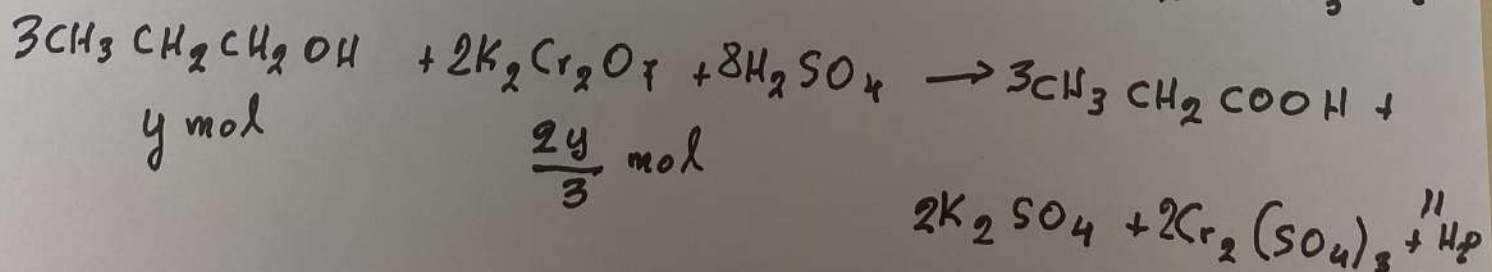 3CH₃CH₂CH₂OH + 2K₂Cr₂O₇ + 8H₂SO₄ → 3CH₃CH₂COOH +
y mol 2y/3 mol
2K₂SO₄ + 2Cr₂(SO₄)₃ + 11H₂O